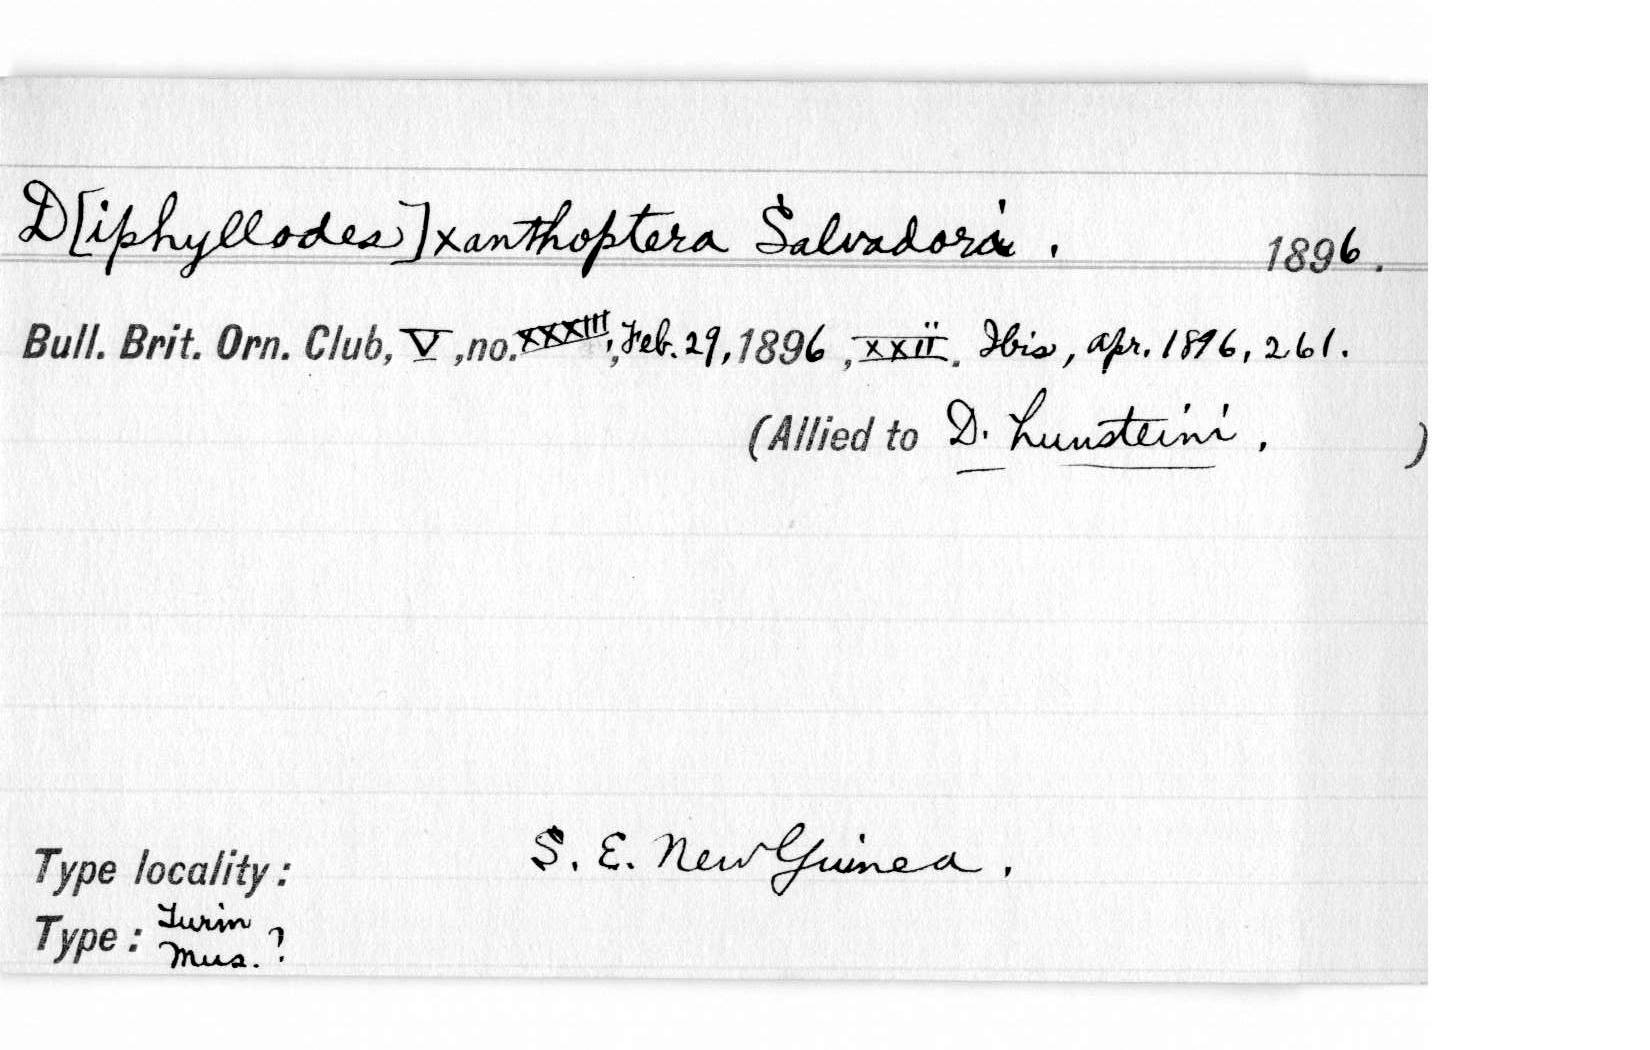 D[iphyllodes] xanthoptera Salvadori. 1896.
Bull. Brit. Orn. Club, V, no. XXXIII, Feb. 29, 1896, xxii. Ibis, Apr. 1896, 261.
(Allied to D. hunsteini. )
Type locality: S. E. New Guinea.
Type: Turin
Mus. ?